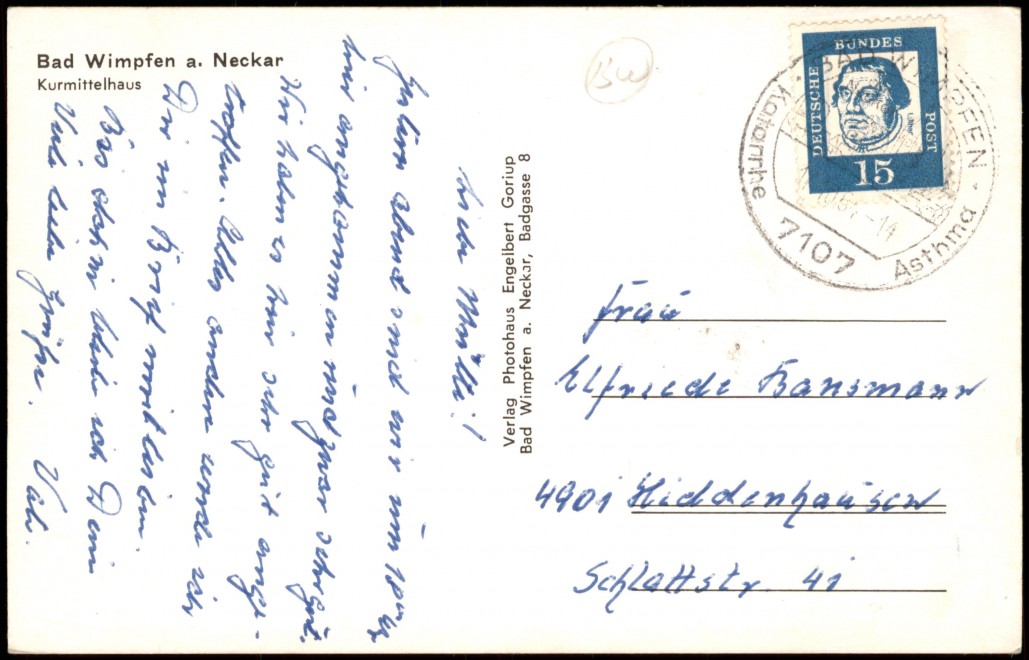 Bad Wimpfen a. Neckar
Kurmittelhaus
BW
DEUTSCHE
BUNDES
POST
Luther
15
BAD WIMPFEN
Katarrhe
Asthma
7107
-14
Liebe Mutti!
Gestern abend sind wir um 10 Uhr
hier angekommen und zwar sehr gut.
Wir haben es hier sehr gut ange-
troffen. Alles andere werde ich
Dir im Brief mitteilen.
Bis dahin bleibe ich Dein
Viele liebe Grüße. Vati.
Verlag Photohaus Engelbert Goriup
Bad Wimpfen a. Neckar, Badgasse 8
Frau
Elfriede Bansmann
4901 Hiddenhausen
Schlattstr. 41